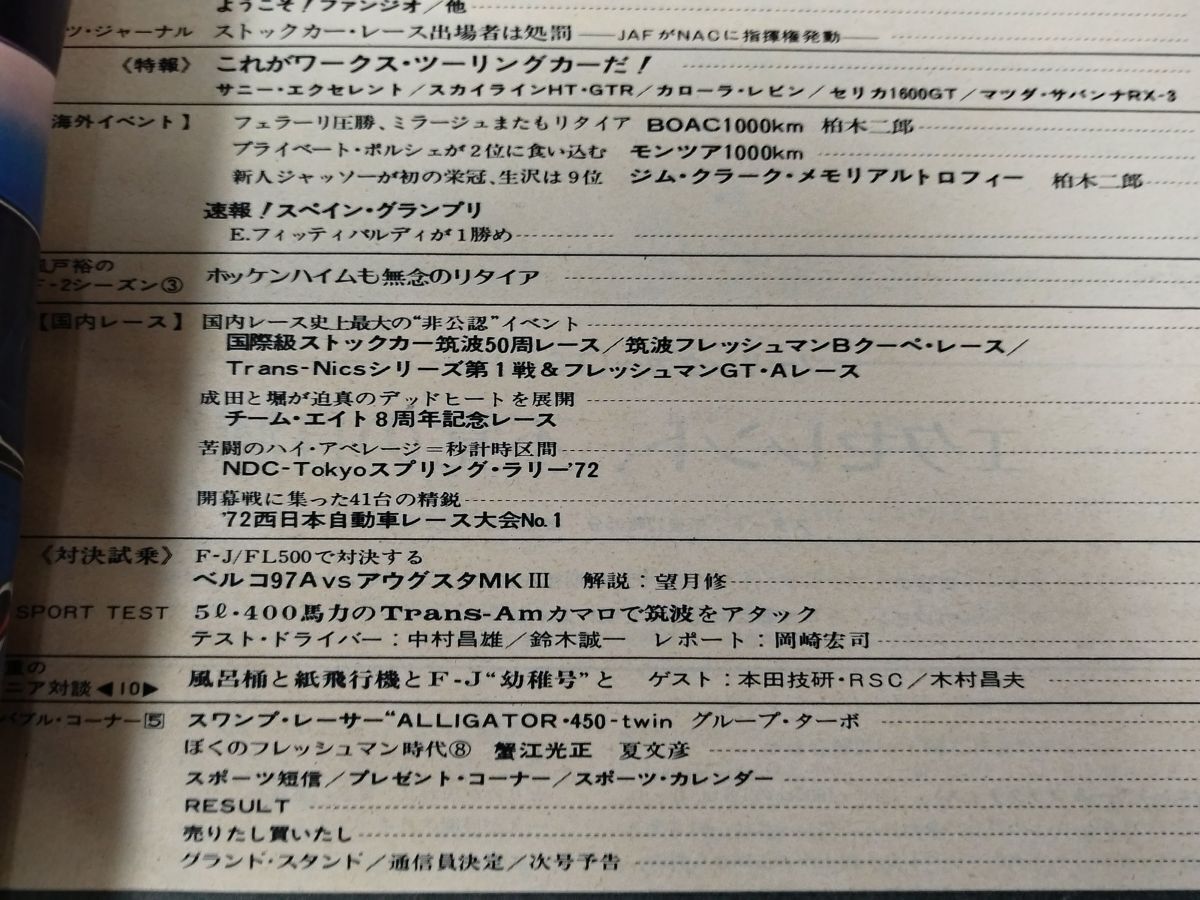 ようこそ!ファンジオ/他
ツ・ジャーナル ストックカー・レース出場者は処罰——JAFがNACに指揮権発動——
《特報》 これがワークス・ツーリングカーだ!
サニー・エクセレント/スカイラインHT・GTR/カローラ・レビン/セリカ1600GT/マツダ・サバンナRX-3
海外イベント】 フェラーリ圧勝、ミラージュまたもリタイア BOAC1000km 柏木二郎
プライベート・ポルシェが2位に食い込む モンツア1000km
新人ジャッソーが初の栄冠、生沢は9位 ジム・クラーク・メモリアルトロフィー 柏木二郎
速報!スペイン・グランプリ
E.フィッティパルディが1勝め
風戸裕の
F-2シーズン③ ホッケンハイムも無念のリタイア
【国内レース】 国内レース史上最大の“非公認”イベント
国際級ストックカー筑波50周レース/筑波フレッシュマンBクーペ・レース/
Trans-Nicsシリーズ第1戦&フレッシュマンGT・Aレース
成田と堀が迫真のデッドヒートを展開
チーム・エイト8周年記念レース
苦闘のハイ・アベレージ=秒計時区間
NDC-Tokyoスプリング・ラリー'72
開幕戦に集った41台の精鋭
'72西日本自動車レース大会No.1
《対決試乗》 F-J/FL500で対決する
ベルコ97AvsアウグスタMKⅢ 解説:望月修
SPORT TEST 5ℓ・400馬力のTrans-Amカマロで筑波をアタック
テスト・ドライバー:中村昌雄/鈴木誠一 レポート:岡崎宏司
の
ニア対談◀10▶ 風呂桶と紙飛行機とF-J“幼稚号”と ゲスト:本田技研・RSC/木村昌夫
バブル・コーナー5 スワンプ・レーサー“ALLIGATOR・450-twin グループ・ターボ
ぼくのフレッシュマン時代⑧ 蟹江光正 夏文彦
スポーツ短信/プレゼント・コーナー/スポーツ・カレンダー
RESULT
売りたし買いたし
グランド・スタンド/通信員決定/次号予告